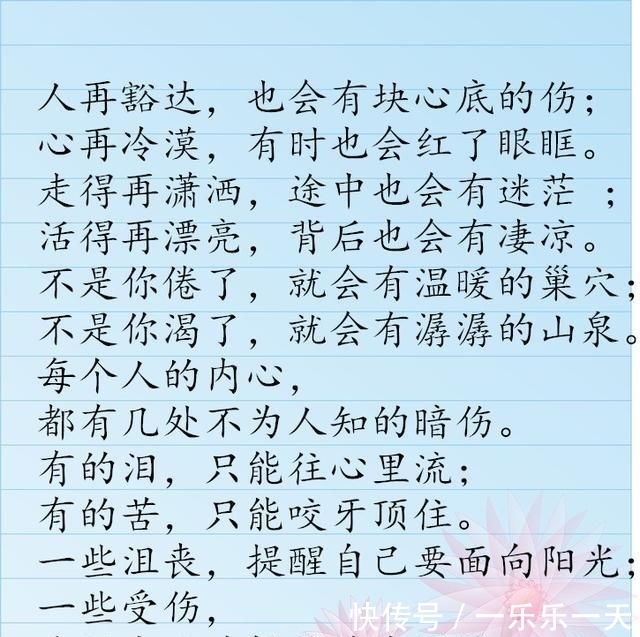 人再豁达，也会有块心底的伤；
心再冷漠，有时也会红了眼眶。
走得再潇洒，途中也会有迷茫；
活得再漂亮，背后也会有凄凉。
不是你倦了，就会有温暖的巢穴；
不是你渴了，就会有潺潺的山泉。
每个人的内心，
都有几处不为人知的暗伤。
有的泪，只能往心里流；
有的苦，只能咬牙顶住。
一些沮丧，提醒自己要面向阳光；
一些受伤，
快传号／一乐乐一天